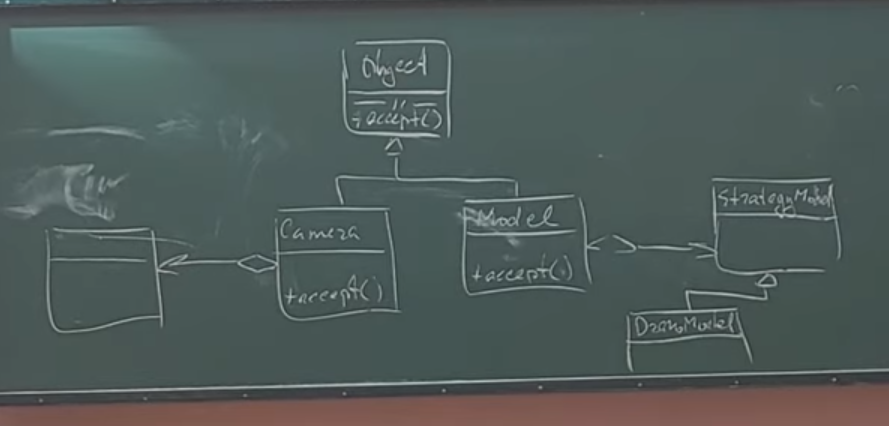 Object
+accept()
Camera
+accept()
Model
+accept()
StrategyModel
DrawModel